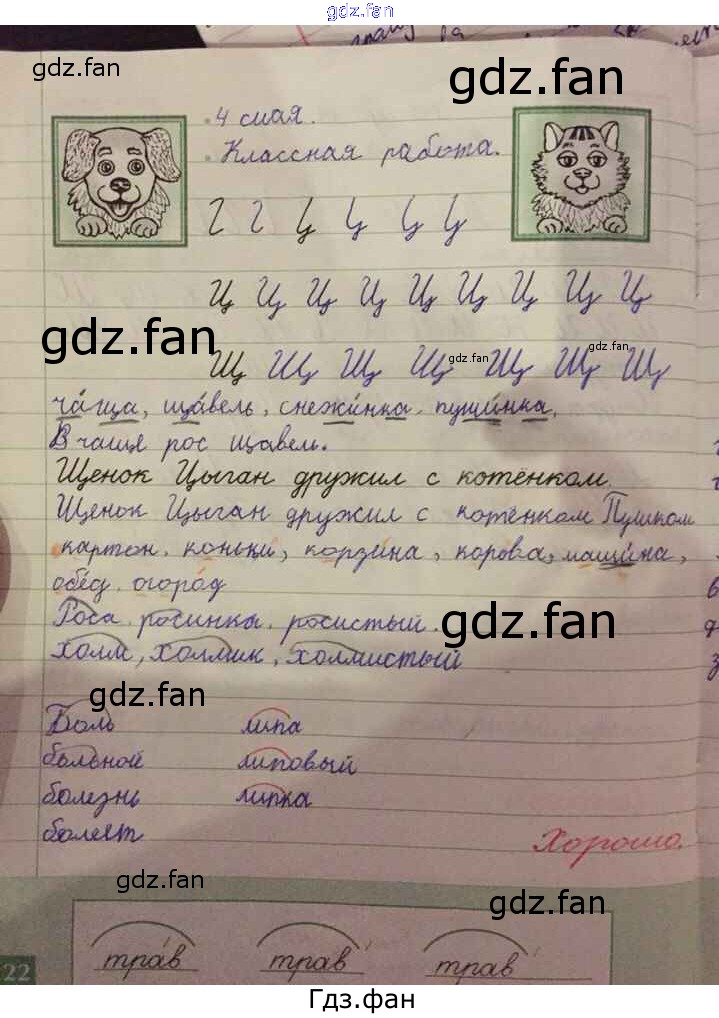 gdz.fan
gdz.fan
gdz.fan
4 мая.
Классная работа.
Г Г Ц Ц Ц Ц
Ц Ц Ц Ц Ц Ц Ц Ц Ц
gdz.fan
Щ Щ Щ Щ Щ Щ Щ
gdz.fan
gdz.fan
ча́ща, ща́вель, снежи́нка, пуши́нка.
В чаще рос щавель.
Щенок Цыган дружил с котёнком.
Щенок Цыган дружил с котёнком Пушком
картон, коньки, корзина, корова, маши́на,
обе́д, огоро́д
Роса, росинка, росистый.
gdz.fan
холм, холмик, холмистый
gdz.fan
Боль липа
больной липовый
болезнь липка
болеет
Хорошо.
gdz.fan
gdz.fan
тра́в трав трав
22
Гдз.фан